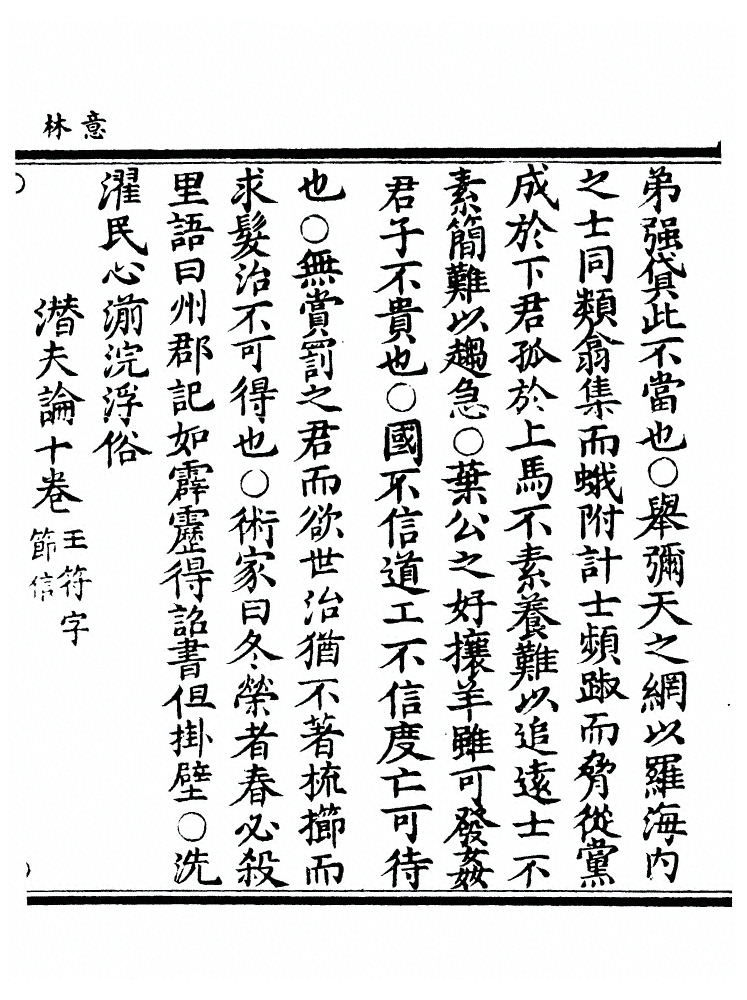 意林
弟强貸此不當也○舉彌天之網以羅海内
之士同類翕集而蛾附計士頻踧而脅從黨
成於下君孤於上馬不素養難以追遠士不
素簡難以趨急○葉公之好攘羊雖可發姦
君子不貴也○國不信道工不信度亡可待
也○無賞罰之君而欲世治猶不著梳擳而
求髮治不可得也○術家曰冬榮者春必殺
里語曰州郡記如霹靂得詔書但掛壁○洗
濯民心湔浣浮俗
潛夫論十卷
王符字
節信